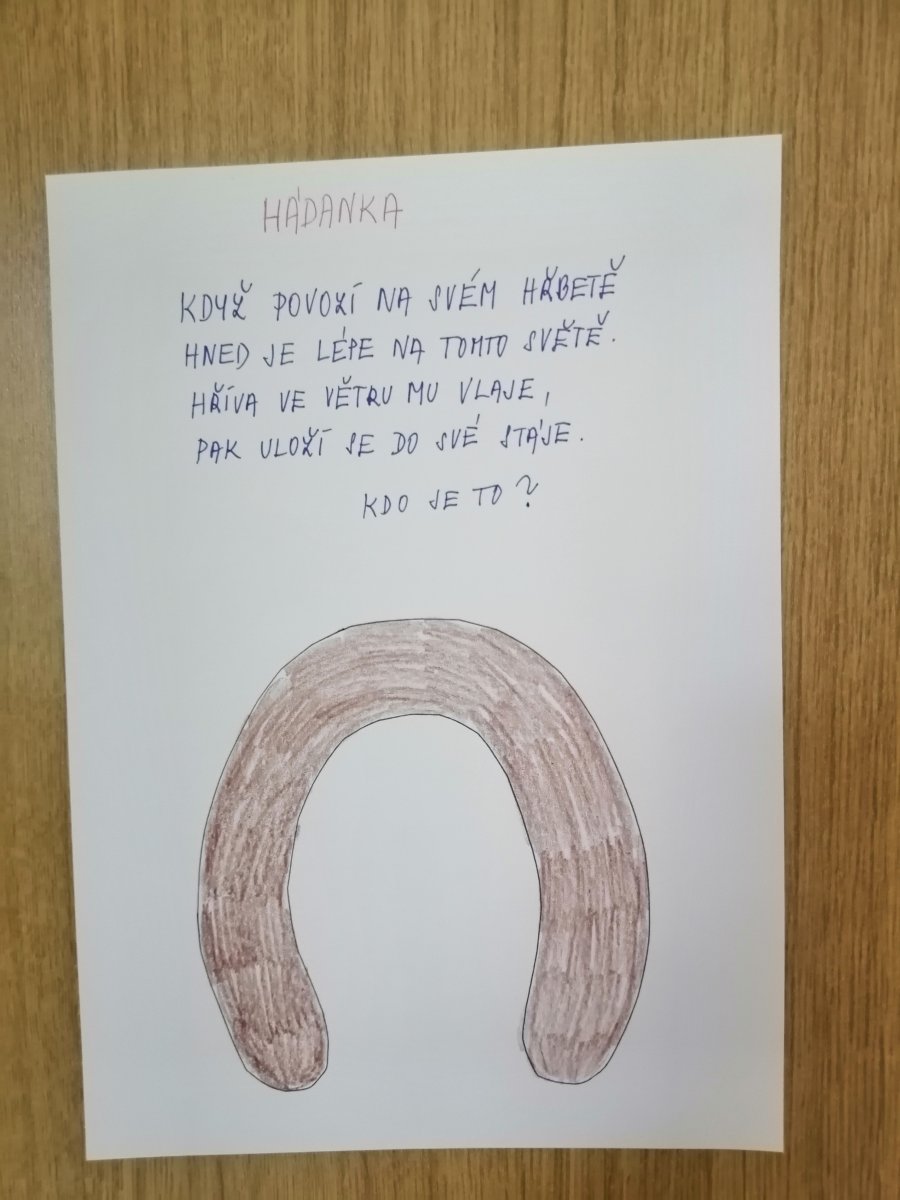 HÁDANKA
KDYŽ POVOZÍ NA SVÉM HŘBETĚ
HNED JE LÉPE NA TOMTO SVĚTĚ.
HŘÍVA VE VĚTRU MU VLAJE,
PAK ULOŽÍ SE DO SVÉ STÁJE.
KDO JE TO?